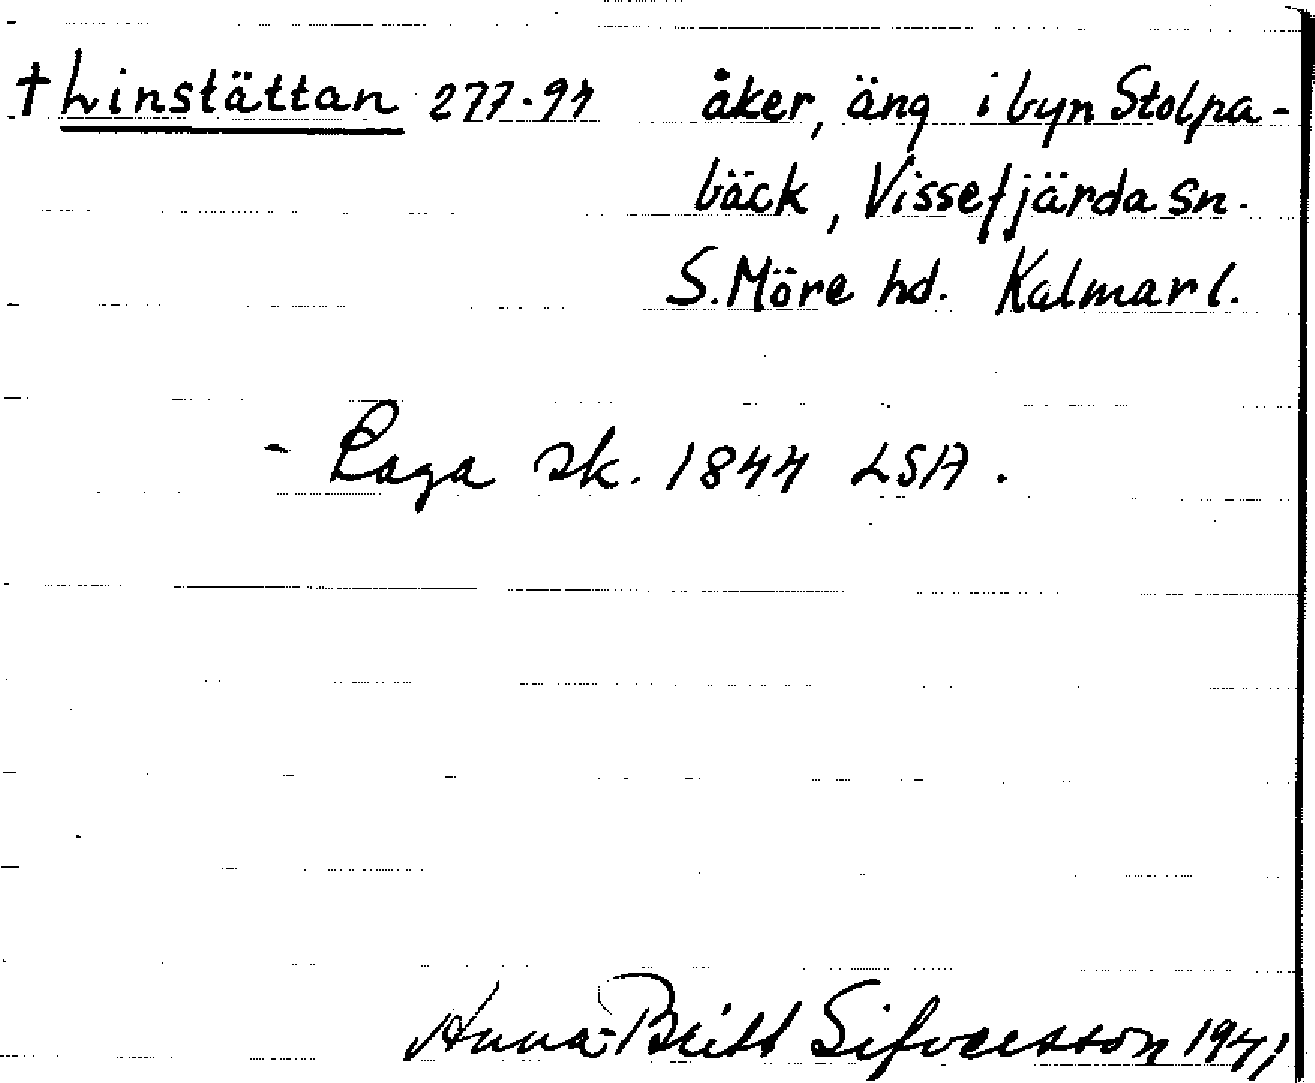 †Linstättan 277-94 åker, äng i byn Stolpa-
bäck, Vissefjärda sn.
S. Möre hd. Kalmar l.
- Laga sk. 1844 LSA.
Anna-Britt Sifversson 1941